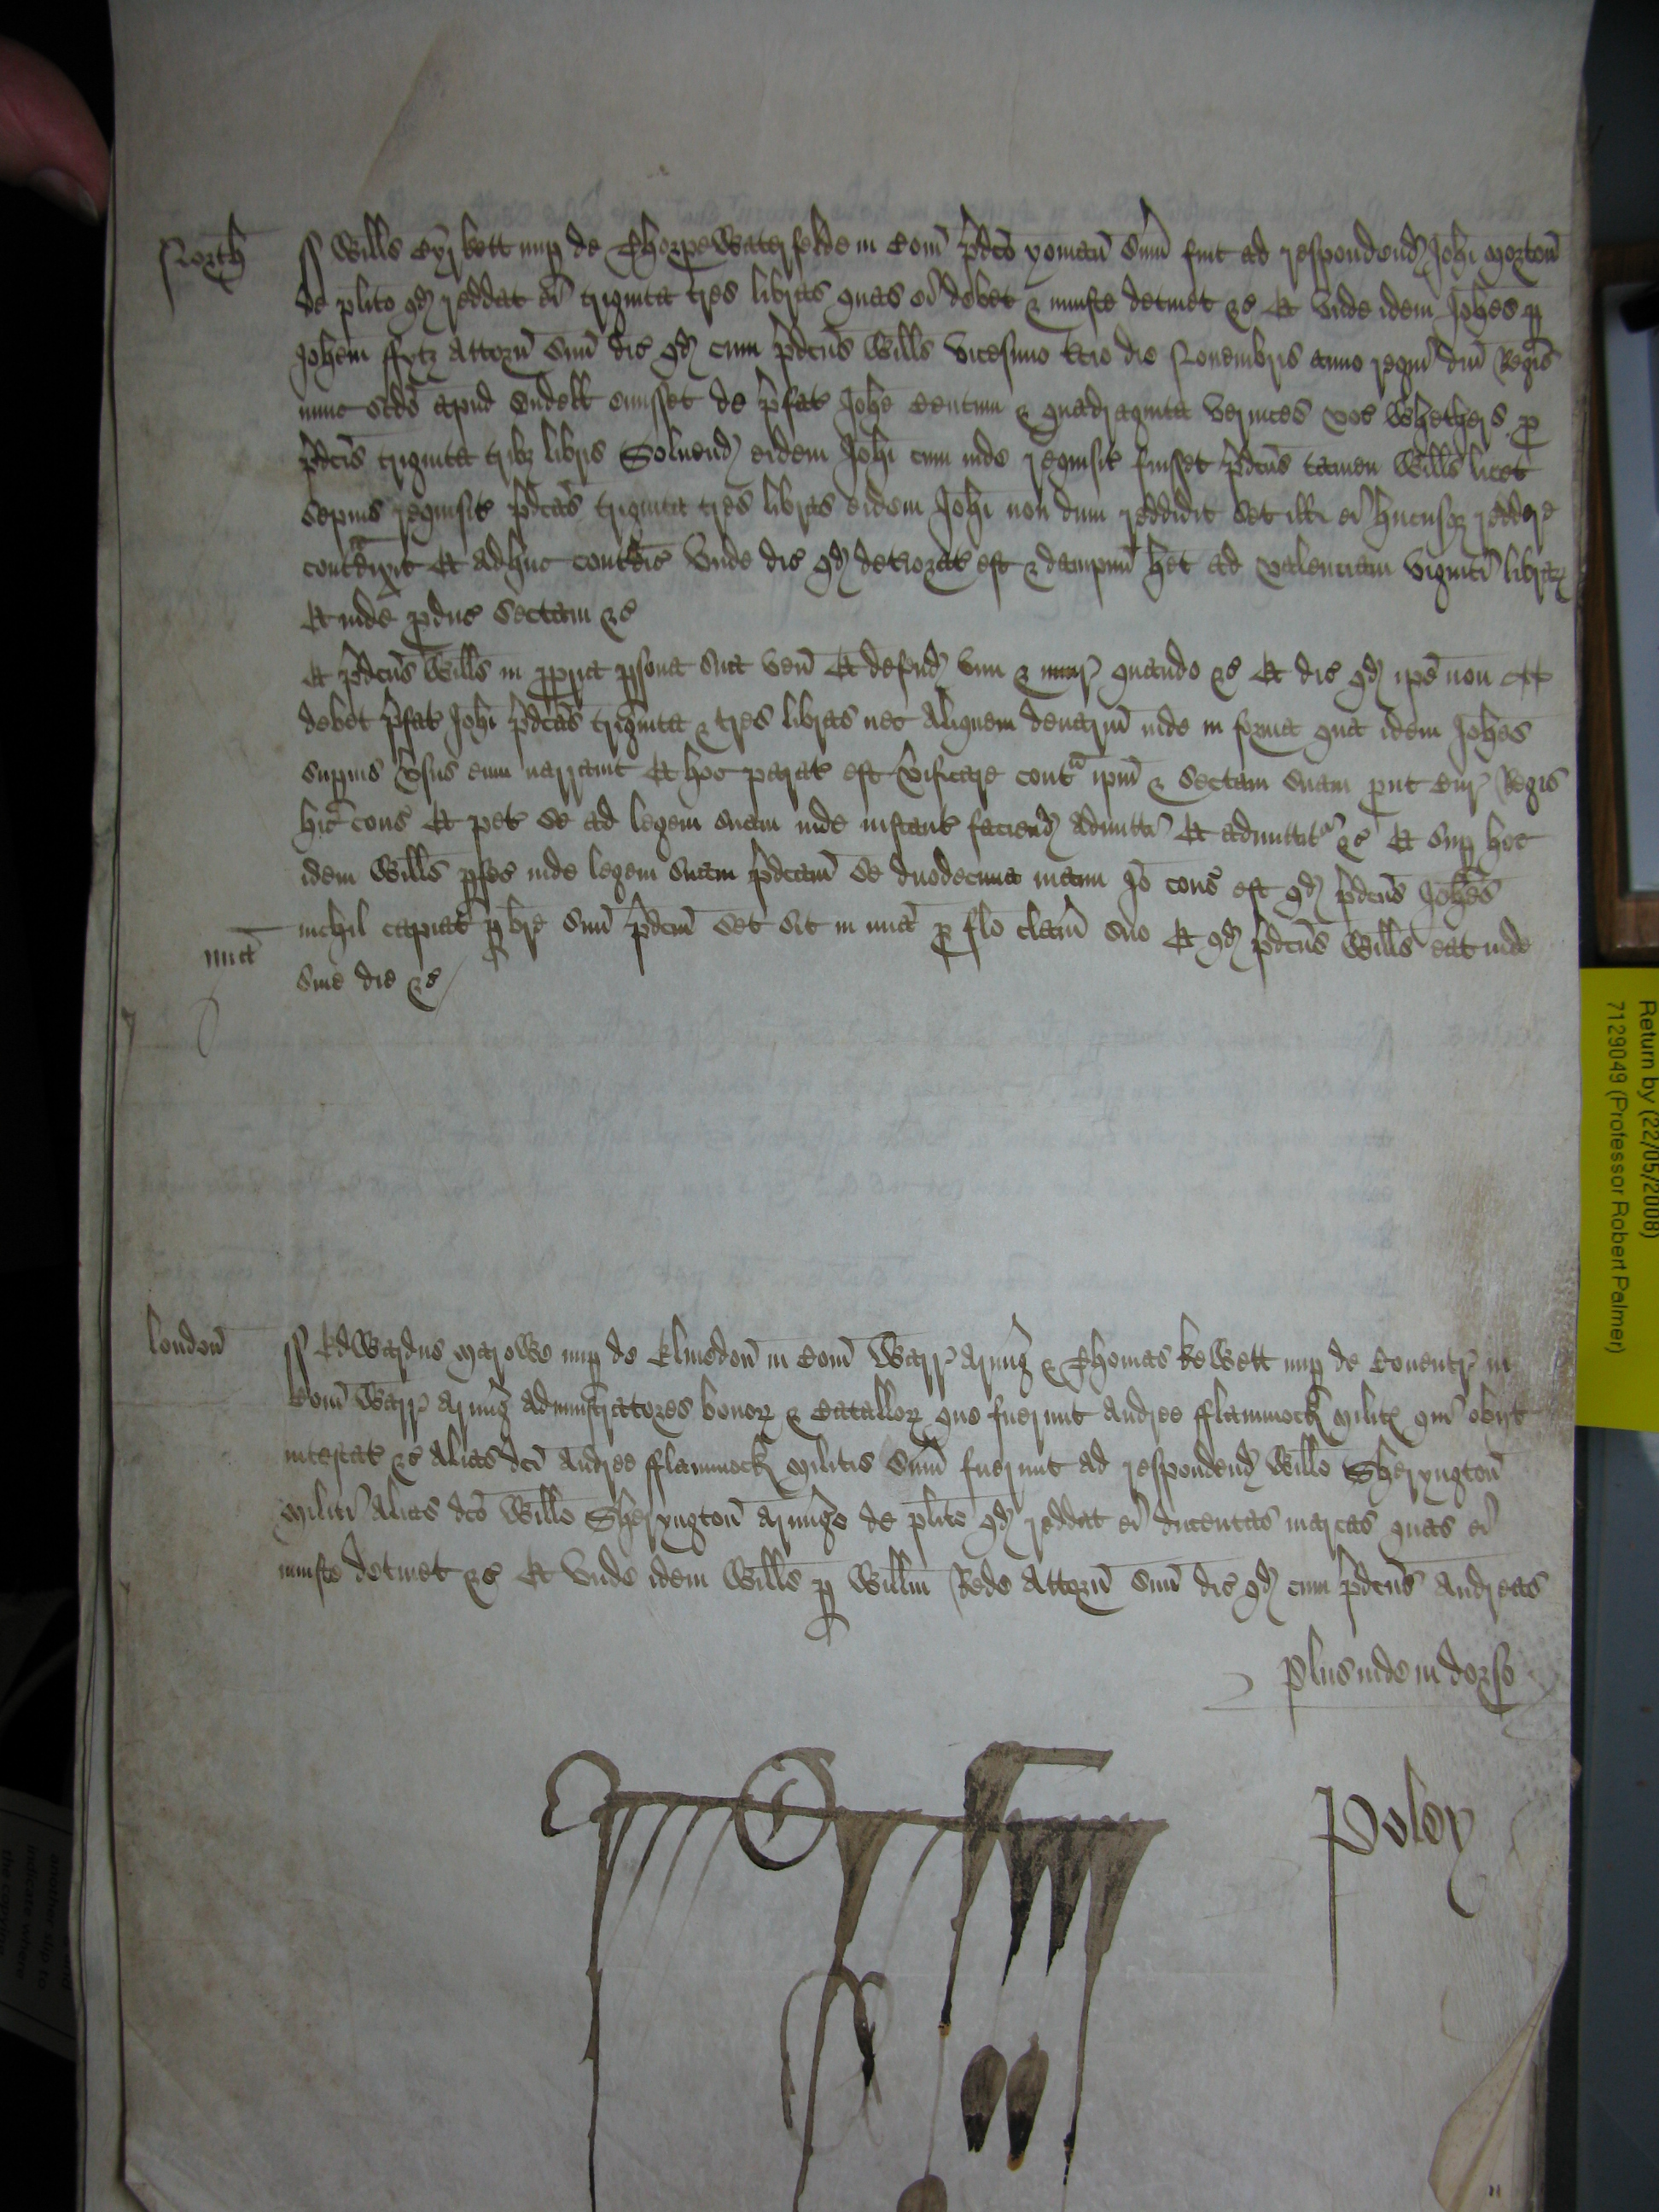 North ss Wills nup de Thorpe Waterfelde in Com p̄dco yoman sum̄ fuit ad respondend Johi Morton
de plito qd reddat ei triginta tres libras quas ei debet & iniuste detinet &c Et unde idem Johes p
Johem ffytz Attorn suu dic qd cum p̄dcus Wills vicesimo tcio die Novembris anno regni dni Regis
nunc scdo apud Undell emisset de p̄fat Johe Centum & quadraginta verutces voc Whethers p
p̄dcis triginta tribz libris Solvend eidem Johi cum inde requisit fuisset p̄dcus tamen Wills licet
sepius requisit p̄dcas triginta tres libras eidem Johi non dum reddidit Set ill ei hucusqz reddere
contdixit Et adhuc contdic Unde dic qd deteriorat est & dampnu het ad valenciam viginti libraz
Et inde pduc sectam &c
Et p̄dcus Wills in ppria psona sua ven Et defend vim & iniur quando &c Et dic qd ipe non
debet p̄fat Johi p̄dcas triginta & tres libras nec aliquem denariu inde in forma qua idem Johes
supius vsus eum narravit Et hoc parat est vificare conta ipm & sectam suam put Cur Regis
hic cons Et pet se ad legem suam inde instant faciend admitti Et admittit &c Et sup hoc
idem Wills pfec inde legem suam p̄dcam se duodecima manu Io cons est qd p̄dcus Johes
mia nichil capiat p bre suu p̄dcm Set sit in mia p flo clam suo Et qd p̄dcus Wills eat inde
sine die &c
London ss Edwardus Marowe nup de Elmedon in Com Warr Armig & Thomas kewett nup de Coventr in
Com Warr Armig administratores bonoz & Catalloz que fuerunt Andree fflammock Milit qui obijt
intestat &c Alias dci Andree fflammock Militis Sum̄ fuerunt ad respondend Willo Sheryngton
Militi Alias dco Willo Sheryngton Armigo de plito qd reddat ei ducentas marcas quas ei
iniuste detinet &c Et unde idem Wills p Willm Rede Attorn suu dic qd cum p̄dcus Andreas
Plus inde in dorso
Poley
Return by (22/05/2008)
7129049 (Professor Robert Palmer)
another slip to
indicate where